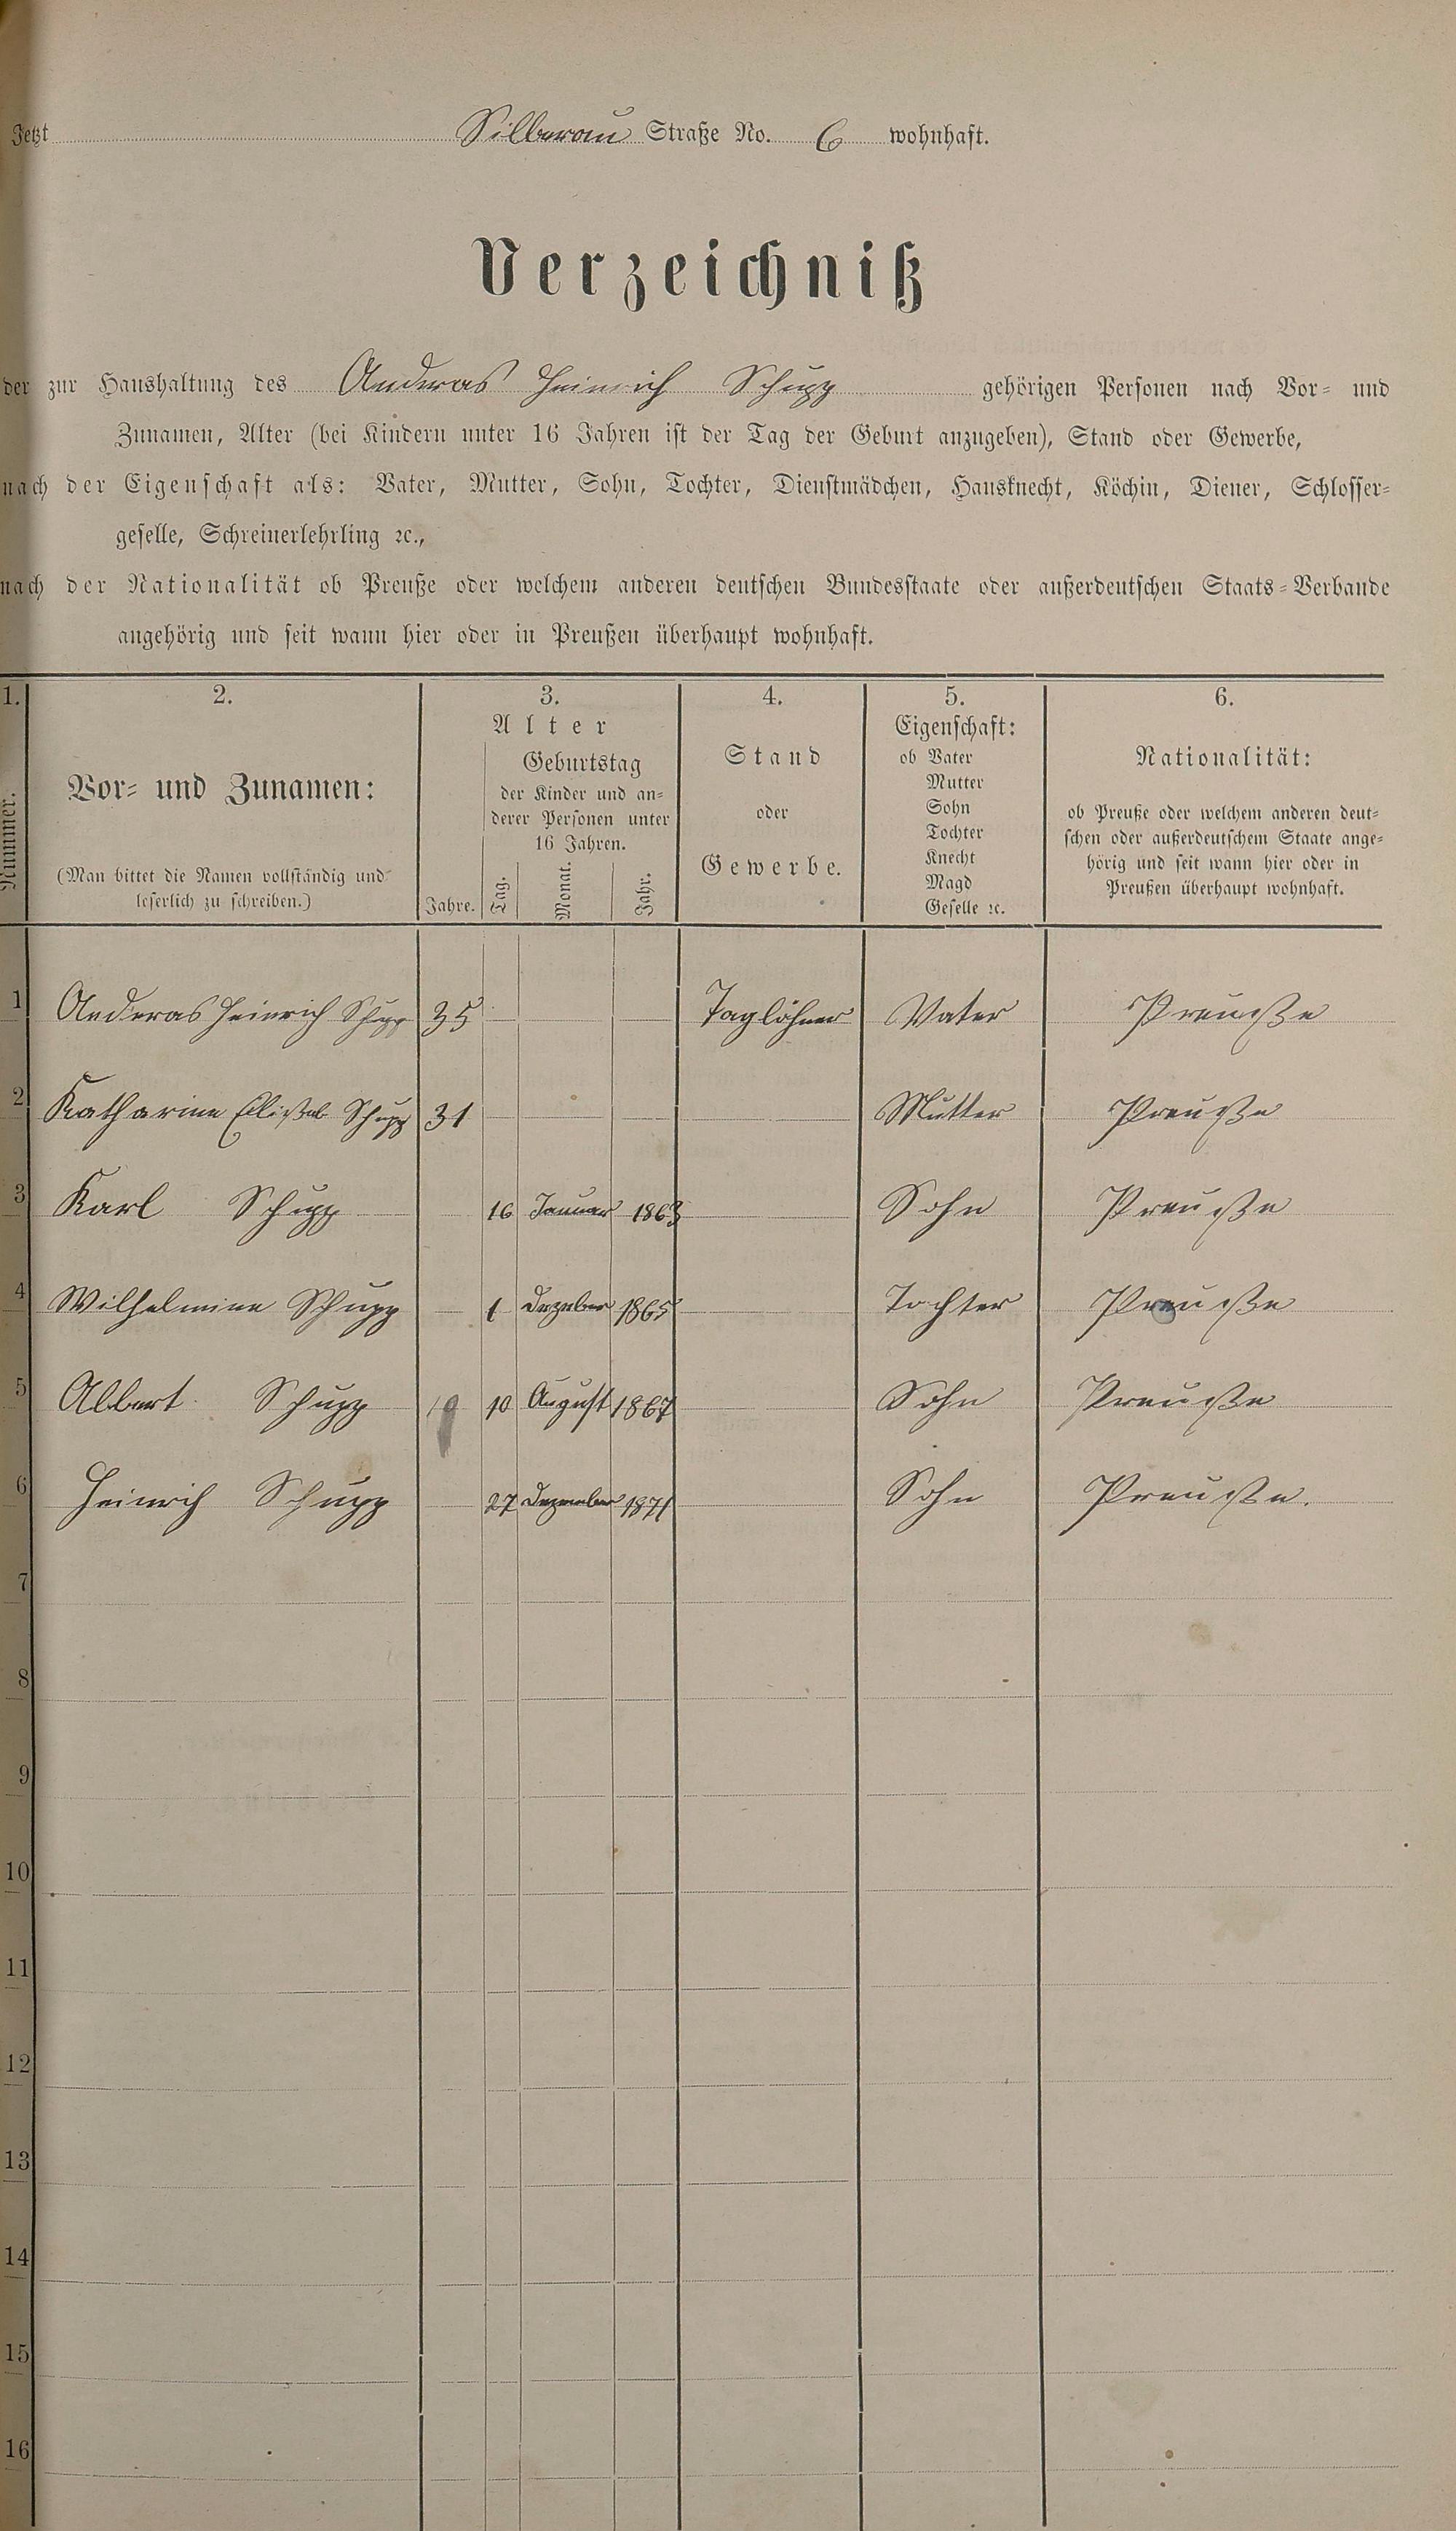 Jetzt Silberau Straße No. 6 wohnhaft.
Verzeichniß
der zur Haushaltung des Anderas Heinrich Schupp gehörigen Personen nach Vor- und
Zunamen, Alter (bei Kindern unter 16 Jahren ist der Tag der Geburt anzugeben), Stand oder Gewerbe,
nach der Eigenschaft als: Vater, Mutter, Sohn, Tochter, Dienstmädchen, Hausknecht, Köchin, Diener, Schlosser-
geselle, Schreinerlehrling ꝛc.,
nach der Nationalität ob Preuße oder welchem anderen deutschen Bundesstaate oder außerdeutschen Staats-Verbande
angehörig und seit wann hier oder in Preußen überhaupt wohnhaft.
1. 2. 3. 4. 5. 6.
Nummer.
Vor- und Zunamen:
(Man bittet die Namen vollständig und
leserlich zu schreiben.)
Alter
Jahre.
Geburtstag
der Kinder und an-
derer Personen unter
16 Jahren.
Tag. Monat. Jahr.
Stand
oder
Gewerbe.
Eigenschaft:
ob Vater
Mutter
Sohn
Tochter
Knecht
Magd
Geselle ꝛc.
Nationalität:
ob Preuße oder welchem anderen deut-
schen oder außerdeutschem Staate ange-
hörig und seit wann hier oder in
Preußen überhaupt wohnhaft.
1 Anderas Heinrich Schupp 35 Taglöhner Vater Preuße
2 Katharine Schupp 31 Mutter Preuße
3 Karl Schupp 16 Januar 1863 Sohn Preuße
4 Wilhelmine Schupp 1 Dezeber 1865 Tochter Preuße
5 Albert Schupp 10 August 1867 Sohn Preuße
6 Heinrich Schupp 27 Dezember 1871 Sohn Preuße.
7
8
9
10
11
12
13
14
15
16